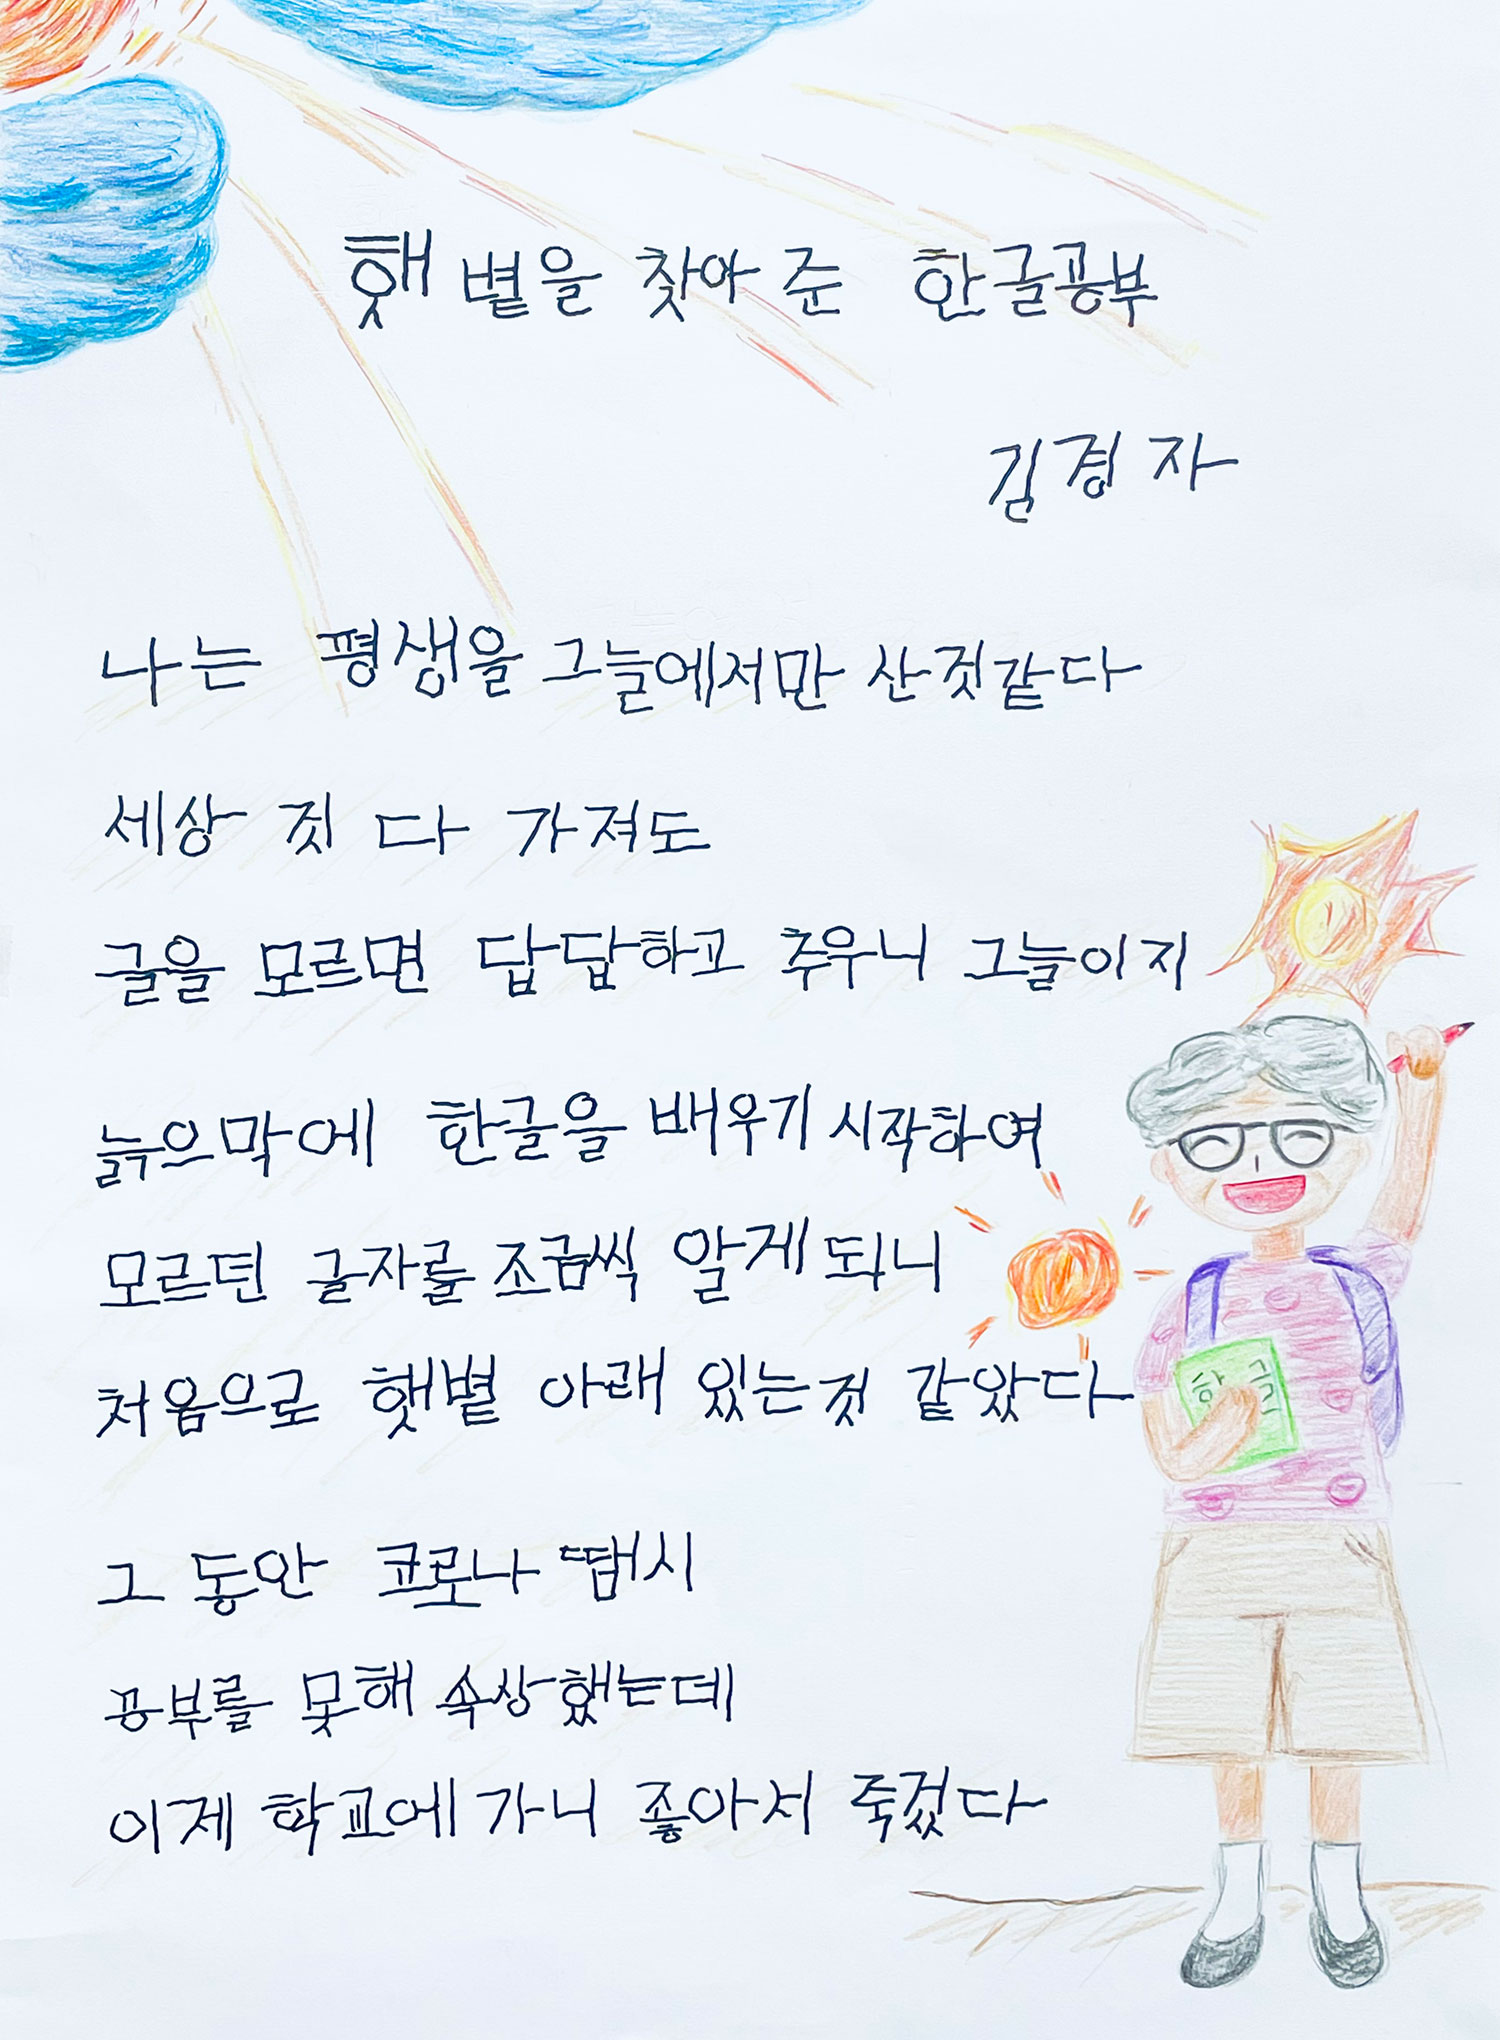 햇볕을 찾아 준 한글공부
김경자
나는 평생을 그늘에서만 산것같다
세상 것 다 가져도
글을 모르면 답답하고 추우니 그늘이지
늙으막에 한글을 배우기 시작하여
모르던 글자를 조금씩 알게 되니
처음으로 햇볕 아래 있는것 같았다
그 동안 코로나 땜시
공부를 못해 속상했는데
이제 학교에 가니 좋아서 죽겄다
한글